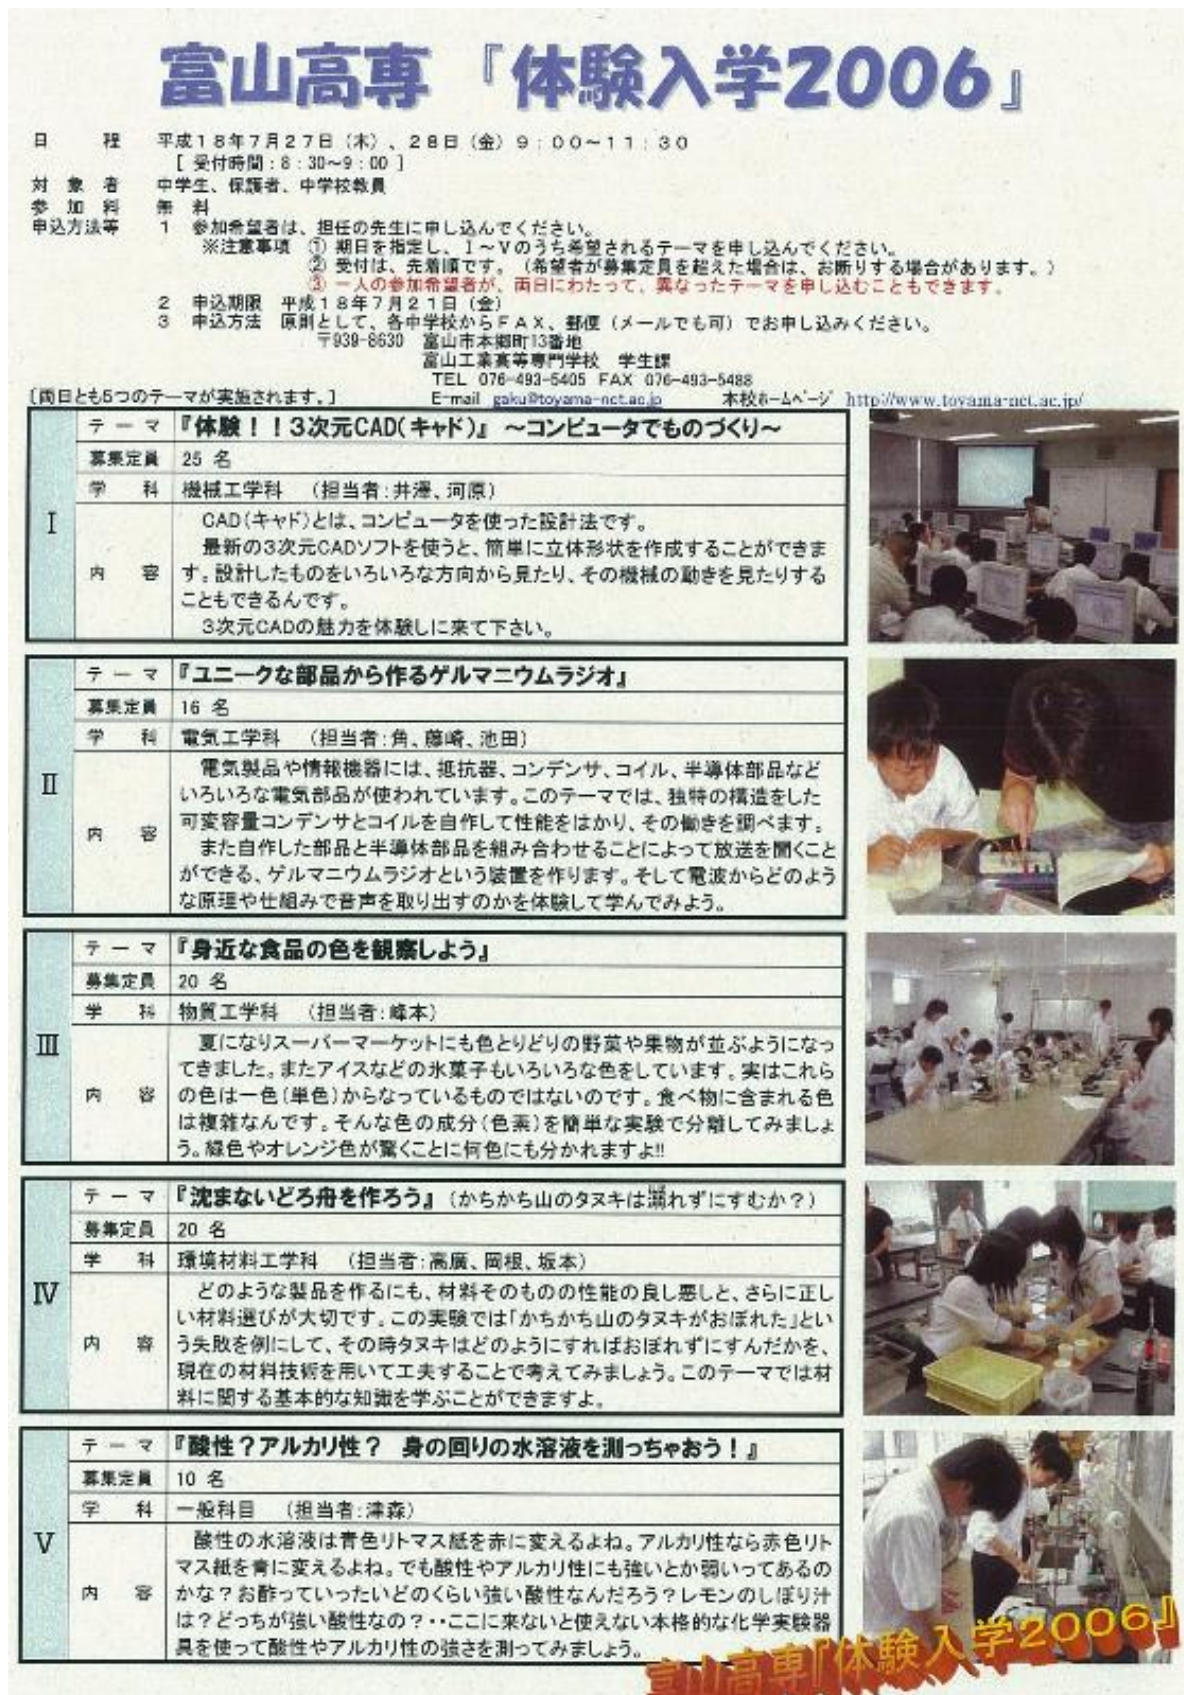 富山高専 『体験入学2006』
日程 平成18年7月27日（木）、28日（金）9：00～11：30
［ 受付時間：8：30～9：00 ］
対象者 中学生、保護者、中学校教員
参加料 無料
申込方法等 1 参加希望者は、担任の先生に申し込んでください。
※注意事項 ① 期日を指定し、Ⅰ～Ⅴのうち希望されるテーマを申し込んでください。
② 受付は、先着順です。（希望者が募集定員を超えた場合は、お断りする場合があります。）
③ 一人の参加希望者が、両日にわたって、異なったテーマを申し込むこともできます。
2 申込期限 平成18年7月21日（金）
3 申込方法 原則として、各中学校からＦＡＸ、郵便（メールでも可）でお申し込みください。
〒939-8630 富山市本郷町13番地
富山工業高等専門学校 学生課
TEL 076-493-5405 FAX 076-493-5488
［両日とも5つのテーマが実施されます。］ E-mail gaku@toyama-nct.ac.jp 本校ホームページ http://www.toyama-nct.ac.jp/
Ⅰ
テーマ 『体験！！3次元CAD(キャド)』 ～コンピュータでものづくり～
募集定員 25 名
学科 機械工学科 （担当者：井澤、河原）
内容
CAD(キャド)とは、コンピュータを使った設計法です。
最新の3次元CADソフトを使うと、簡単に立体形状を作成することができま
す。設計したものをいろいろな方向から見たり、その機械の動きを見たりする
こともできるんです。
3次元CADの魅力を体験しに来て下さい。
Ⅱ
テーマ 『ユニークな部品から作るゲルマニウムラジオ』
募集定員 16 名
学科 電気工学科 （担当者：角、藤崎、池田）
内容
電気製品や情報機器には、抵抗器、コンデンサ、コイル、半導体部品など
いろいろな電気部品が使われています。このテーマでは、独特の構造をした
可変容量コンデンサとコイルを自作して性能をはかり、その働きを調べます。
また自作した部品と半導体部品を組み合わせることによって放送を聞くこと
ができる、ゲルマニウムラジオという装置を作ります。そして電波からどのよう
な原理や仕組みで音声を取り出すのかを体験して学んでみよう。
Ⅲ
テーマ 『身近な食品の色を観察しよう』
募集定員 20 名
学科 物質工学科 （担当者：峰本）
内容
夏になりスーパーマーケットにも色とりどりの野菜や果物が並ぶようになっ
てきました。またアイスなどの氷菓子もいろいろな色をしています。実はこれら
の色は一色(単色)からなっているものではないのです。食べ物に含まれる色
は複雑なんです。そんな色の成分(色素)を簡単な実験で分離してみましょ
う。緑色やオレンジ色が驚くことに何色にも分かれますよ!!
Ⅳ
テーマ 『沈まないどろ舟を作ろう』（かちかち山のタヌキは溺れずにすむか？）
募集定員 20 名
学科 環境材料工学科 （担当者：高廣、岡根、坂本）
内容
どのような製品を作るにも、材料そのものの性能の良し悪しと、さらに正し
い材料選びが大切です。この実験では「かちかち山のタヌキがおぼれた」とい
う失敗を例にして、その時タヌキはどのようにすればおぼれずにすんだかを、
現在の材料技術を用いて工夫することで考えてみましょう。このテーマでは材
料に関する基本的な知識を学ぶことができますよ。
Ⅴ
テーマ 『酸性？アルカリ性？ 身の回りの水溶液を測っちゃおう！』
募集定員 10 名
学科 一般科目 （担当者：津森）
内容
酸性の水溶液は青色リトマス紙を赤に変えるよね。アルカリ性なら赤色リト
マス紙を青に変えるよね。でも酸性やアルカリ性にも強いとか弱いってあるの
かな？お酢っていったいどのくらい強い酸性なんだろう？レモンのしぼり汁
は？どっちが強い酸性なの？・・ここに来ないと使えない本格的な化学実験器
具を使って酸性やアルカリ性の強さを測ってみましょう。
富山高専『体験入学2006』